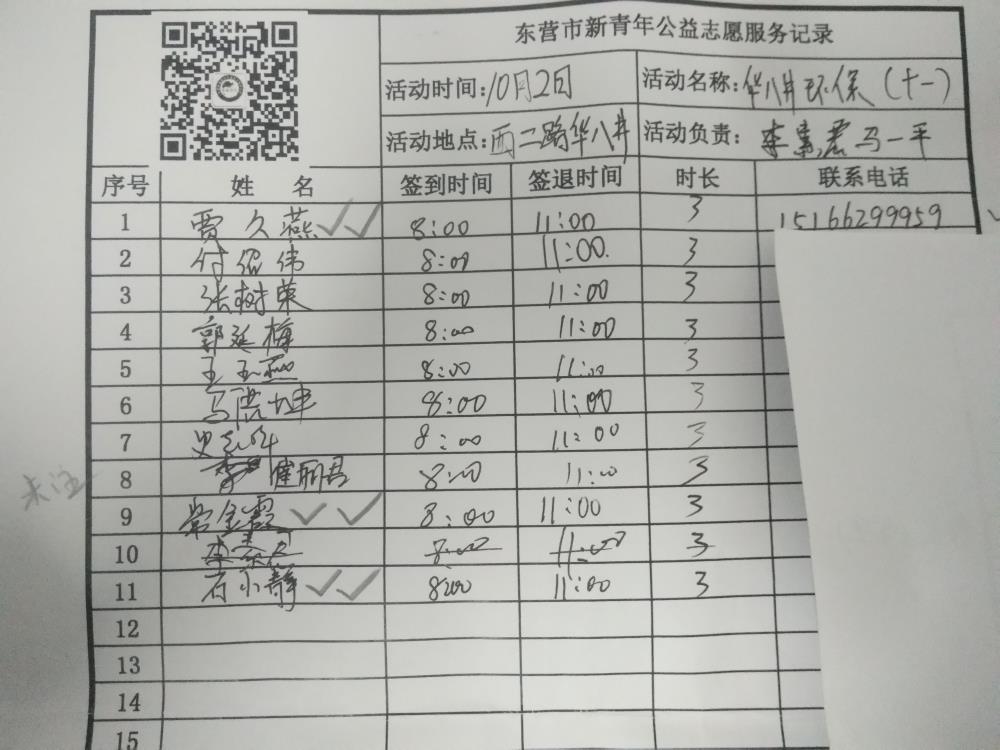 东营市新青年公益志愿服务记录
活动时间:10月2日 活动名称:华八井环保(十一)
活动地点:西二路华八井 活动负责: 马一平
序号 姓名 签到时间 签退时间 时长 联系电话
1 贾久燕 8:00 11:00 3 15166299959
2 付绍伟 8:00 11:00. 3
3 张树荣 8:00 11:00 3
4 郭延梅 8:00 11:00 3
5 王玉燕 8:00 11:00 3
6 马洪坤 8:00 11:00 3
7 8:00 11:00 3
8 崔丽君 8:00 11:00 3
9 常金霞 8:00 11:00 3
10 8:00 11:00 3
11 石小静 8:00 11:00 3
12
13
14
15